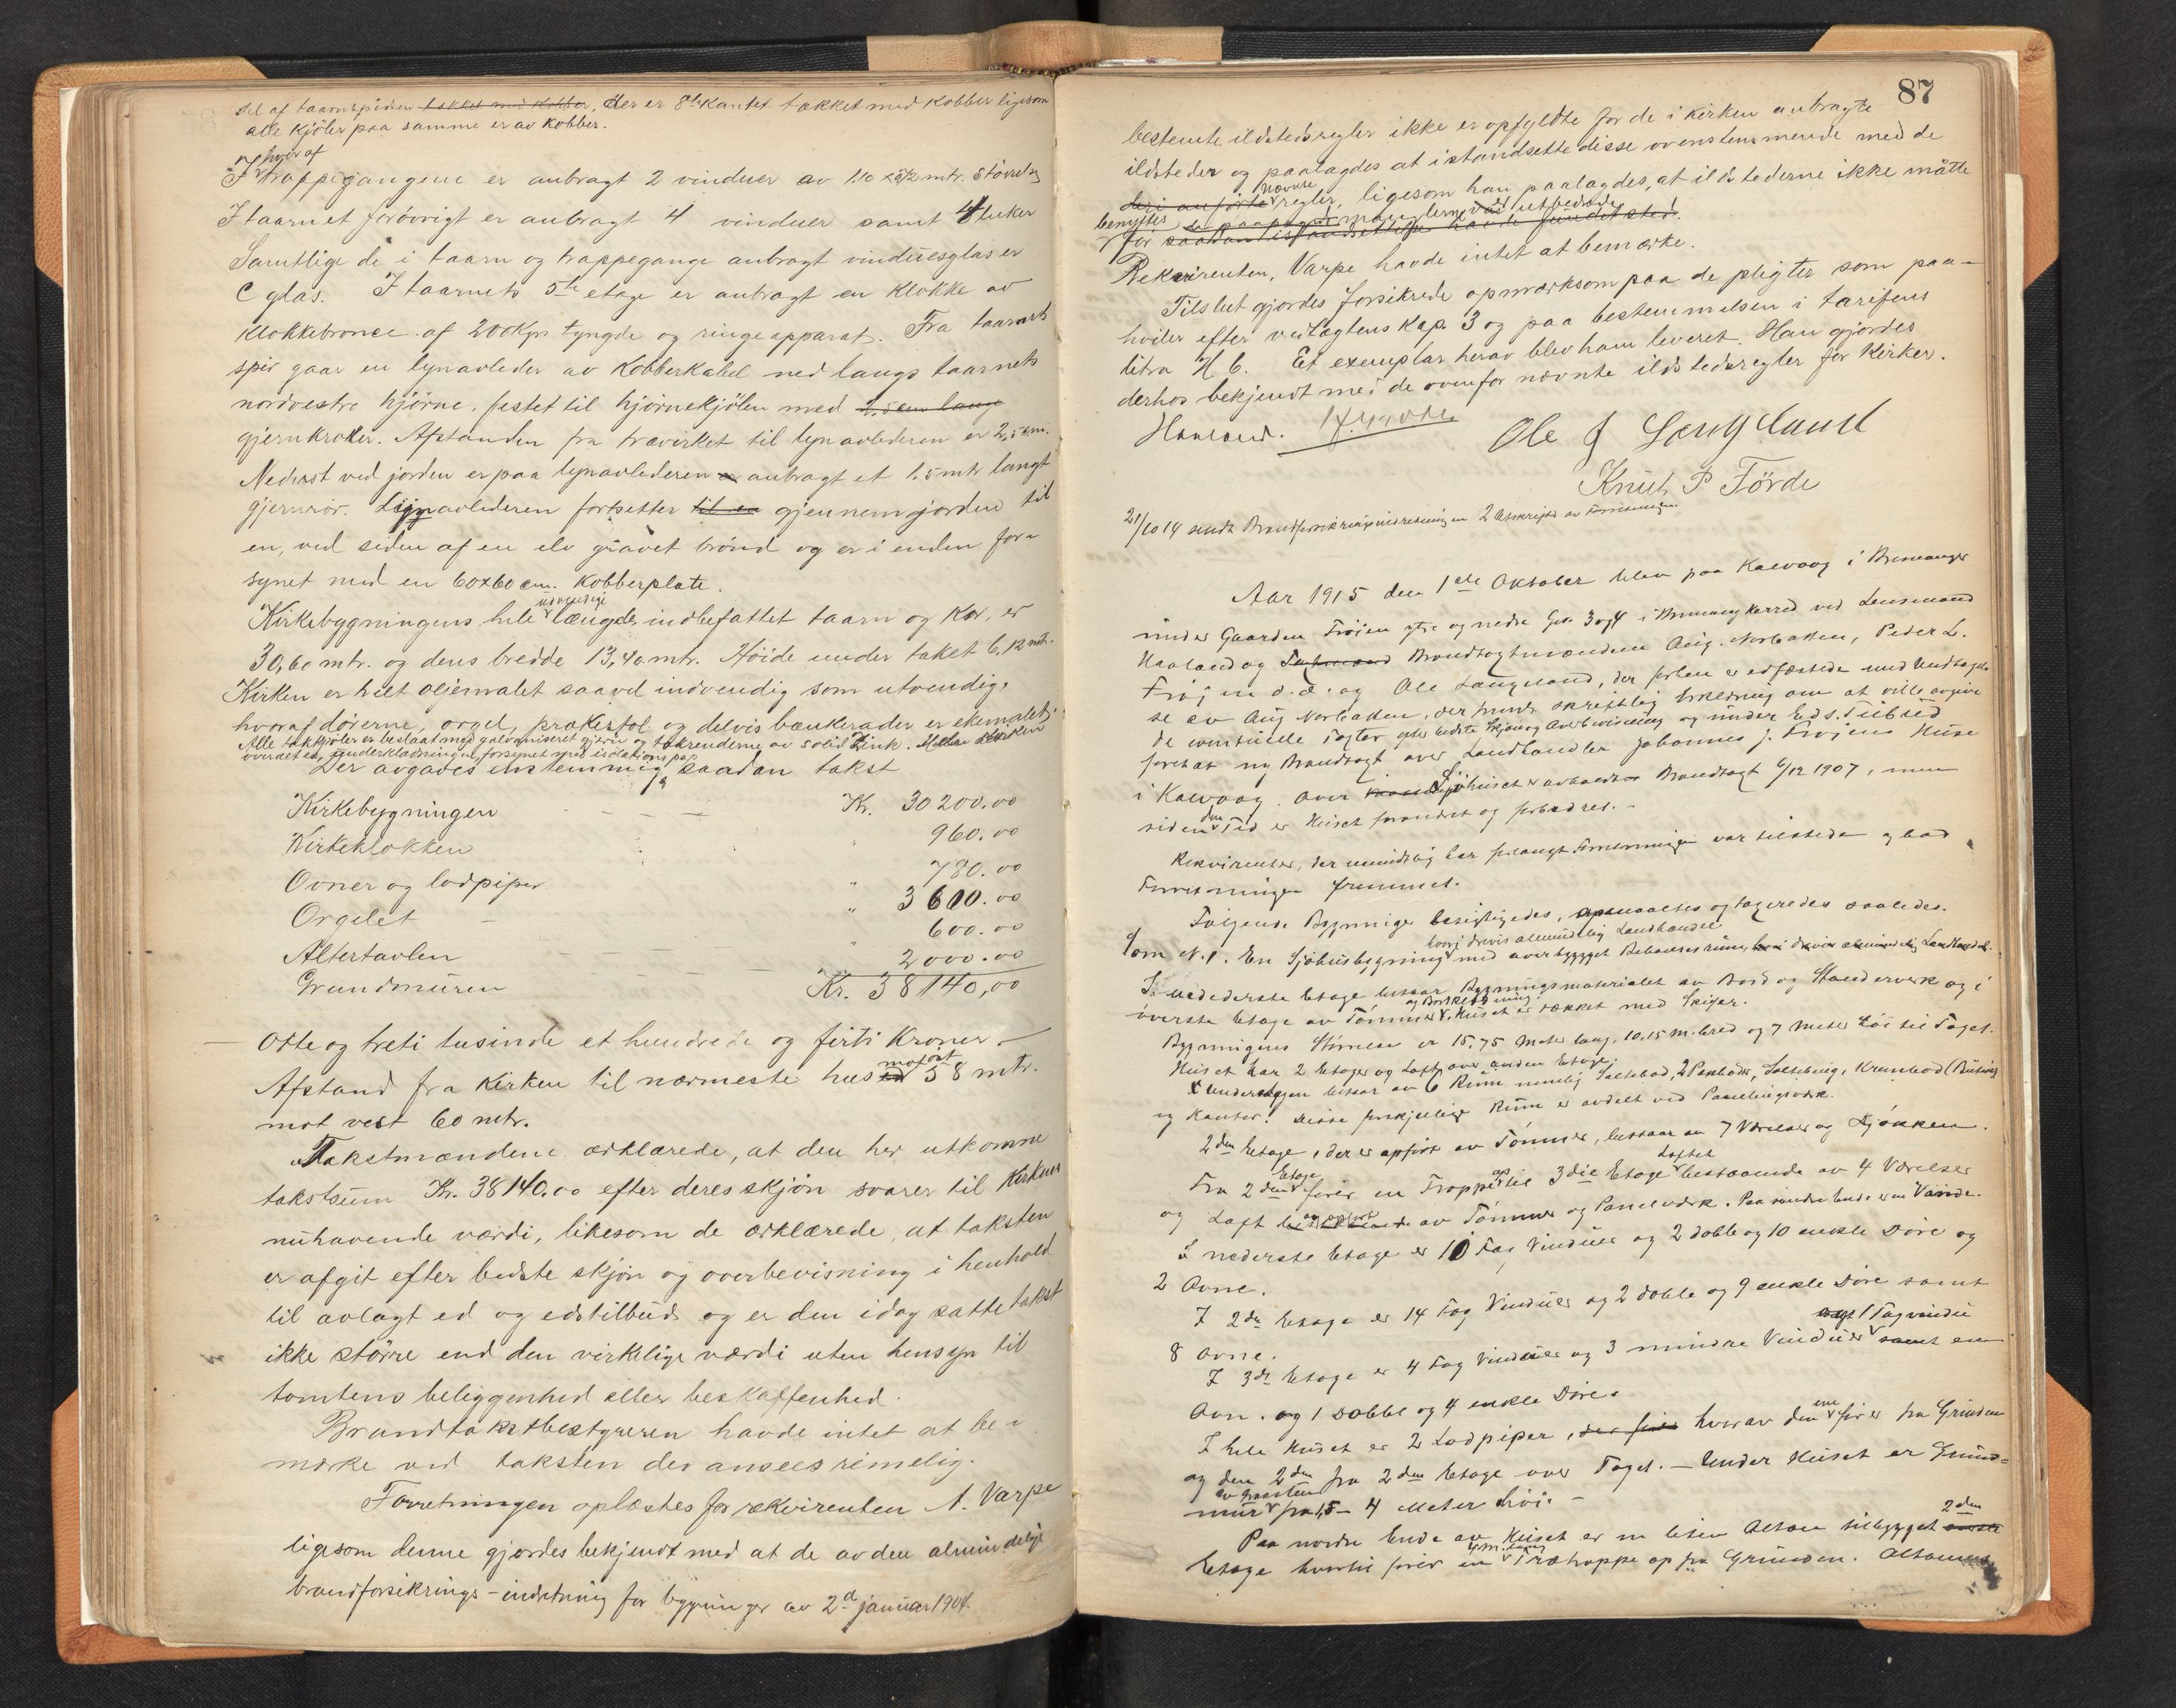 del af taarnspiden takket med Kobber, der er 8te Kantet takket med Kobber ligesom
alle Kjøler paa samme er av Kobber.
hvoraf
I trappegangene er anbragt 2 vinduer av 1.10 x mtr. Størrelse
I taarnet forøvrigt er anbragt 4 vinduer samt 4 luker
Samtlige de i taarn og trappegange anbragt vinduesglas er
C glas. I taarnets 5te etage er anbragt en Klokke av
Klokkebronce af 200 Kgr. tyngde og ringeapparat. Fra taarnets
spir gaar en lynavleder av Kobberkabel ned langs taarnets
nordvestre hjørne, festet til hjørnekjølen med 2,5 cm lange
gjernkroker. Afstanden fra trævirket til lynavlederen er 2,5 cm.
Nederst ved jorden er paa lynavlederen anbragt et 1.5 mtr langt
gjernrør. Lynavlederen fortsetter til en gjennem jorden til
en, ved siden af en elv gravet brønd og er i enden for-
synet med en 60x60 cm. Kobberplate.
udvendige
Kirkebygningens hele længde, indbefattet taarn og Kor, er
30,60 mtr. og dens bredde 13,40 mtr. Høide under taket 6,12 mtr.
Kirken er helt oljemalet saavel indvendig som utvendig,
hvoraf dørerne, orgel, prækestol og delvis bænkerader er ekemalet.
Alle takkjøler er beslaat med galvaniseret gjern og takrenderne av solid Zink.
overalt er underklædningen forsynet med isolationspap
Der avgaves enstemmig saadan takst
Kirkebygningen - - - Kr. 30200.00
Kirkeklokken " 960.00
Ovner og lodpiper " 780.00
Orgelet - " 3600.00
Altertavlen " 600.00
Grundmuren 2000.00
Kr. 38140,00
Otte og treti tusinde et hundrede og firti Kroner.-
mot øst
Afstand fra Kirken til nærmeste hus 58 mtr.
mot vest 60 mtr.
Takstmændene erklærede, at den her utkomne
takstsum Kr. 38140.00 efter deres skjøn svarer til Kirkens
nuhavende værdi, likesom de erklærede, at taksten
er afgit efter bedste skjøn og overbevisning i henhold
til avlagt ed og edstilbud og er den idag satte takst
ikke større end den virkelige værdi uten hensyn til
tomtens beliggenhed eller beskaffenhed.
Brandtakstbestyreren havde intet at be-
mærke ved taksten der ansees rimelig.
Forretningen oplæstes for rekvirenten A. Varpe
ligesom denne gjordes bekjendt med at de av den almindelige
brandforsikrings-indretning for bygninger av 2d januar 1904
87
bestemte ildstedsregler ikke er opfyldte for de i kirken anbragte
ildsteder og paalagdes at istandsette disse overenstemmende med de
nævnte
deri anførte regler, ligesom han paalagdes, at ildstederne ikke måtte
benyttes manglerne var utbedrede
før saadan istandsettelse havde fundet sted.
Rekvirenten, Varpe havde intet at bemærke.
Tilslut gjordes forsikrede opmærksom paa de pligter som paa-
hviler efter vedtægtens Kap. 3 og paa bestemmelsen i tarifens
litra H. 6. Et exemplar herav blev ham leveret. Han gjordes
derhos bekjendt med de ovenfor nævnte ildstedsregler for Kirker.
Haaland. Ole J Langeland
Knut P Førde
21/10 14 sendt Brandforsikringsindretningen 2 Afskrifter av Forretningen.
Aar 1915 den 1ste Oktober blev paa Kalvaag i Bremanger
under Gaarden Frøien ytre og nedre Gno 3 og 4 i Bremanger herred ved Lensmand
Haaland og Brandtagtmændene Aug. Norbakken, Peder L.
Frøjen d.æ. og Ole Langeland, der forben er edfæstede med Undtagel-
se av Aug Norbakken, der skriftlig Erklæring om at ville avgive
de eventuelle Tagter efter bedste Skjøn og Overbevisning og under Eds Tilbud
foretat ny Brandtagt over Landhandler Johannes J. Frøjens Huse
i Kalvaag. Over Sjøhuset er avholdt Brandtagt 6/12 1907, men
siden den Tid er Huset forandret og forbedret.-
Rekvirenten, der mundtlig har forlangt Forretningen var tilstede og bad
Forretningen fremmet.
Følgende Bygninger besigtigedes, opmaaltes og tageredes saaledes.
hvori drives almindelig Landhandel
Som N. 1. En Sjøhusbygning med overbygget Beboelsesrum, hvori drives almindelig Landhandel.
I nederste Etage bestaar Bygningsmaterialet av Bord og Stenderverk og i
og Bordklædning
øverste Etage av Tømmer. Huset er tækket med Skifer.
Bygningens Størrelse er 15,75 Meter lang, 10,15 m. bred og 7 Meter høi til Taget.
Huset har 2 Etager og Loft over anden Etage.
Underetagen bestaar av 6 Rum nemlig Saltebod, 2 Pakboder, Krambod (Butik)
og Kontor. Disse forskjellige Rum er avdelt ved Panelingsværk.
2den Etage, der er opført av Tømmer, bestaar av 7 Værelser og Kjøkken.
Etage op Loftet
Fra 2den fører en Trappe til 3die Etage bestaaende av 4 Værelser
og Loft opført av Tømmer og Panelværk. Paa søndre Ende er en Vande.
I nederste Etage er 10 Fag Vinduer og 2 doble og 10 enkle Døre og
2 Ovne.
I 2den Etage er 14 Fag Vinduer og 2 doble og 9 enkle Døre samt
8 Ovne. 1 Tagvindu
I 3die Etage er 4 Fag Vinduer og 3 mindre Vinduer samt en
Ovn. og 1 Dobbel og 4 enkle Døre.
ene
I hele Huset er 2 Lodpiper, der fører hvorav den fører fra Grunden
og den 2den fra 2den Etage over Taget. - Under Huset er Grund-
av graasten
mur fra 1,5 - 4 Meter høi. -
2den
Paa nordre Ende av Huset er en liten Altan tilbygget øverste
Etage hvortil fører en Trætrappe op fra Grunden. Altanen